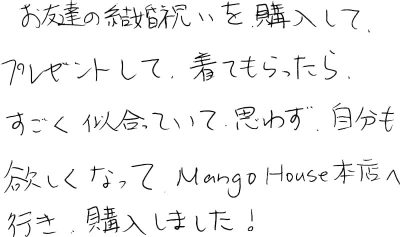 お友達の結婚祝いを、購入して、
プレゼントして、着てもらったら、
すごく似合っていて、思わず、自分も
欲しくなって、Mango House本店へ
行き、購入しました！